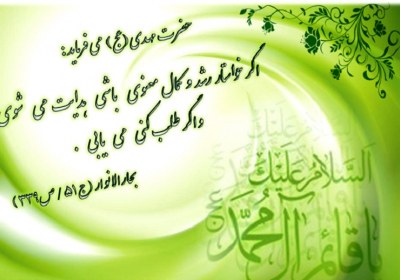 حضرت مهدی (عج) می فرماید:
اگر خواستار رشد و کمال معنوی باشی هدایت می شوی
و اگر طلب کنی می یابی .
بحارالانوار (ج ۵۱ / ص ۳۳۹)
السلام علیک
یا قائم آل محمد